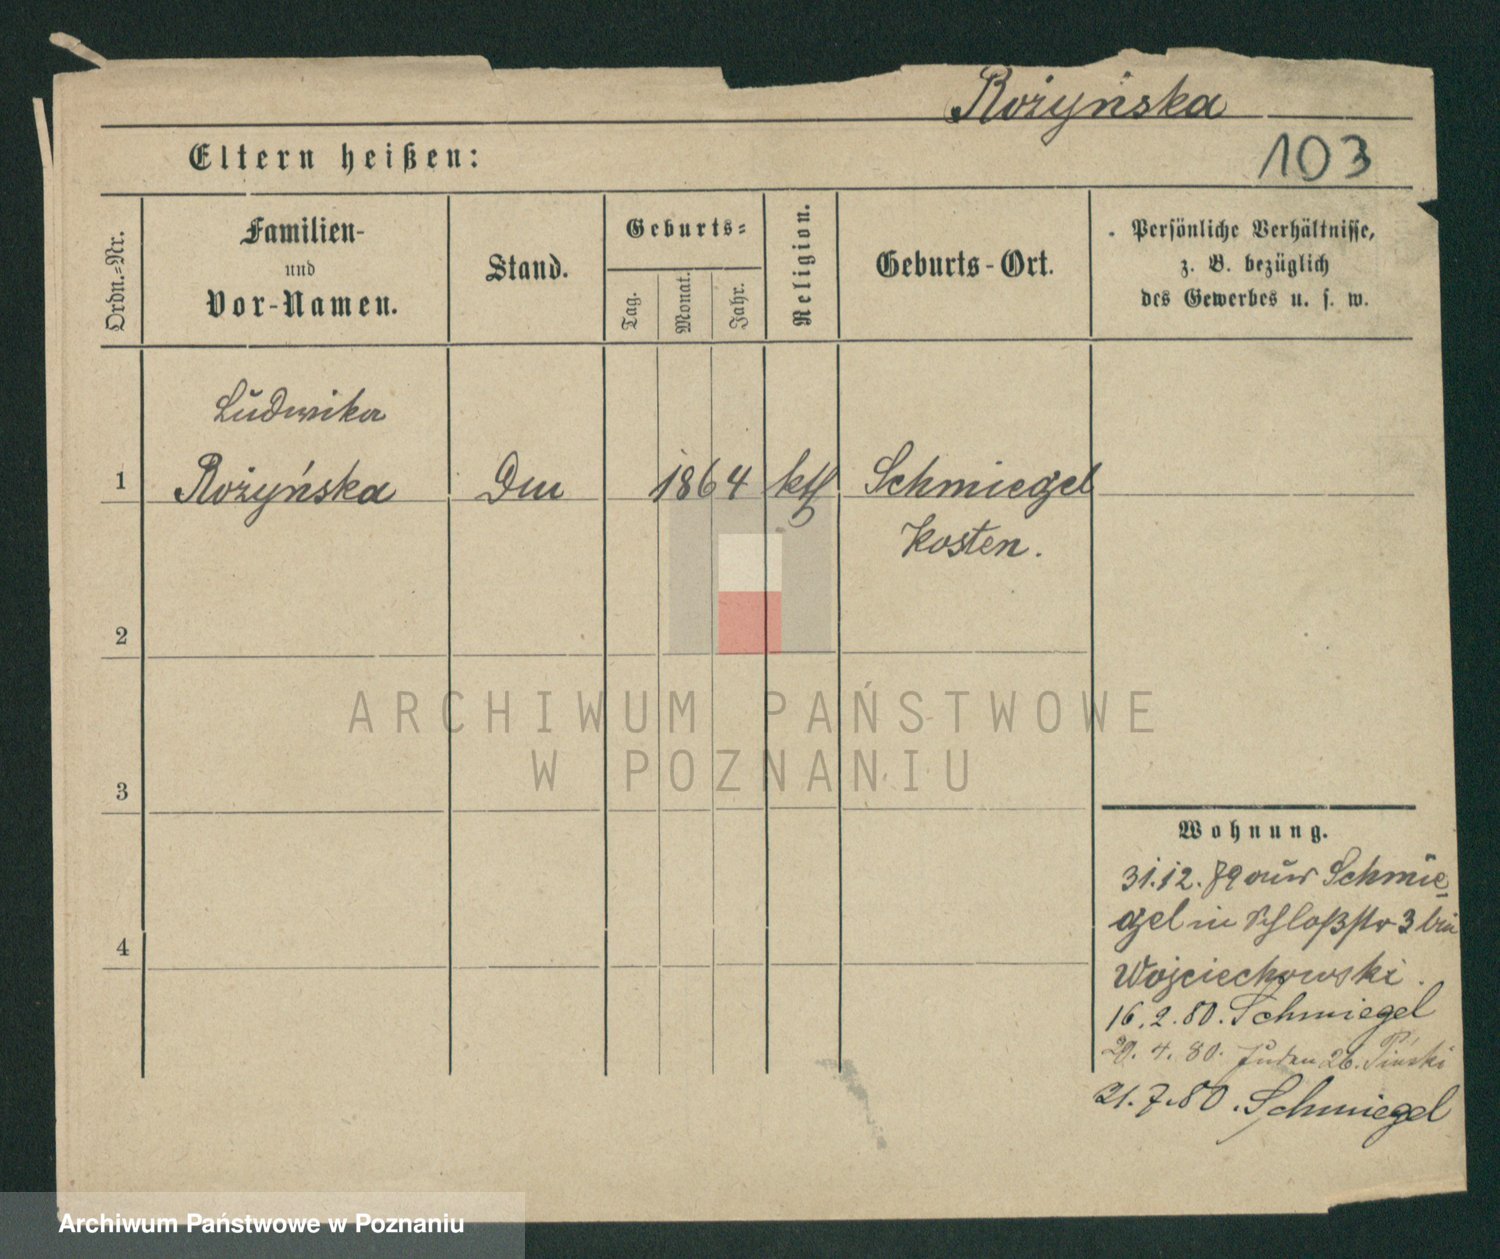 Rożyńska
Eltern heißen:
103
Ordn.=Nr.
Familien-
und
Vor-Namen.
Stand.
Geburts=
Tag.
Monat.
Jahr.
Religion.
Geburts-Ort.
Persönliche Verhältnisse,
z. B. bezüglich
des Gewerbes u. s. w.
Ludwika
1 Rożyńska 1864 kth Schmiegel
Kosten.
2
3
4
ARCHIWUM PAŃSTWOWE
W POZNANIU
Wohnung.
31.12.79 aus Schmie
gel in Schloßstr 3 bei
Wojciechowski.
16.2.80. Schmiegel
20.4.80. Juden 26.
21.7.80. Schmiegel
Archiwum Państwowe w Poznaniu